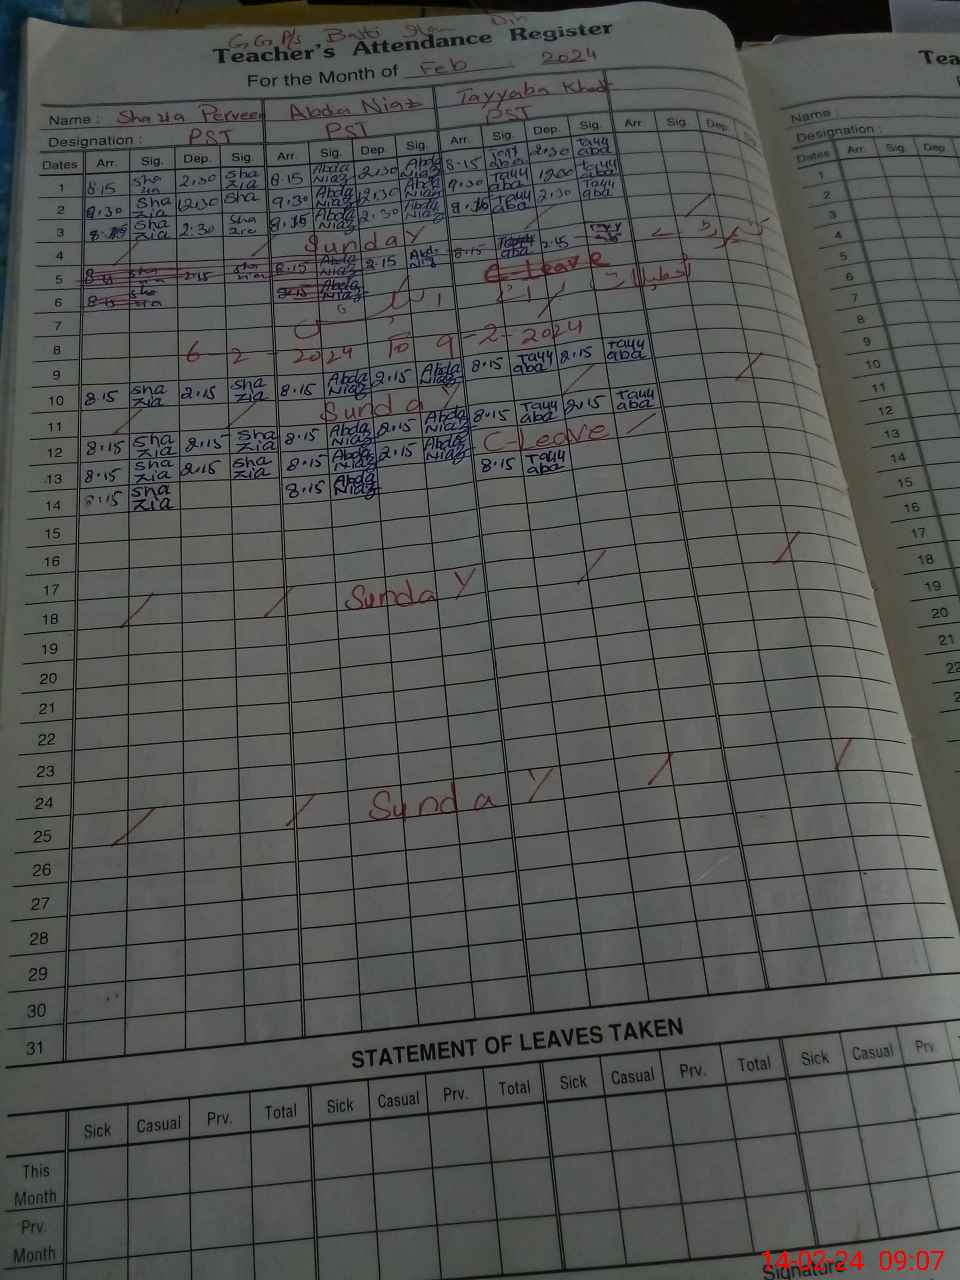 G.G.P/S Basti Din
Teacher's Attendance Register
For the Month of Feb 2024
Name : Shazia Perveen Abda Niaz Tayyaba
Designation : PST PST PST
Dates Arr. Sig. Dep. Sig. Arr. Sig. Dep. Sig. Arr. Sig. Dep. Sig. Arr. Sig. Dep.
1 8.15 Shazia 2.30 Shazia 8.15 Abda Niaz 2.30 Abda Niaz 8.15 Tayyaba 2.30 Tayyaba
2 8.30 Shazia 12.30 Sha 9.30 Abda Niaz 12.30 Abda Niaz 9.30 Tayyaba 1200 Tayyaba
3 8.15 Shazia 2.30 8.15 Abda Niaz 2.30 Abda Niaz 8.15 Tayyaba 2.30 Tayyaba
4 Sunday
5 2.15 8.15 Abda Niaz 2.15 8.15 Tayyaba 2.15
6 Abda Niaz C-Leave
7
8 6-2-2024 To 9-2-2024
9
10 8.15 Shazia 2.15 Shazia 8.15 Abda Niaz 2.15 Abda Niaz 8.15 Tayyaba 2.15 Tayyaba
11 Sunday
12 8.15 Shazia 2.15 Shazia 8.15 Abda Niaz 2.15 Abda Niaz 8.15 Tayyaba 2.15 Tayyaba
13 8.15 Shazia 2.15 Shazia 8.15 Abda Niaz 2.15 Abda Niaz C-Leave
14 8.15 Shazia 8.15 Abda Niaz 8.15 Tayyaba
15
16
17
18 Sunday
19
20
21
22
23
24
25 Sunday
26
27
28
29
30
31
STATEMENT OF LEAVES TAKEN
Sick Casual Prv. Total Sick Casual Prv. Total Sick Casual Prv. Total Sick Casual Prv.
This Month
Prv. Month
Signature
Tea
Name :
Designation :
Dates Arr. Sig. Dep.
1
2
3
4
5
6
7
8
9
10
11
12
13
14
15
16
17
18
19
20
21
22
14-02-24 09:07